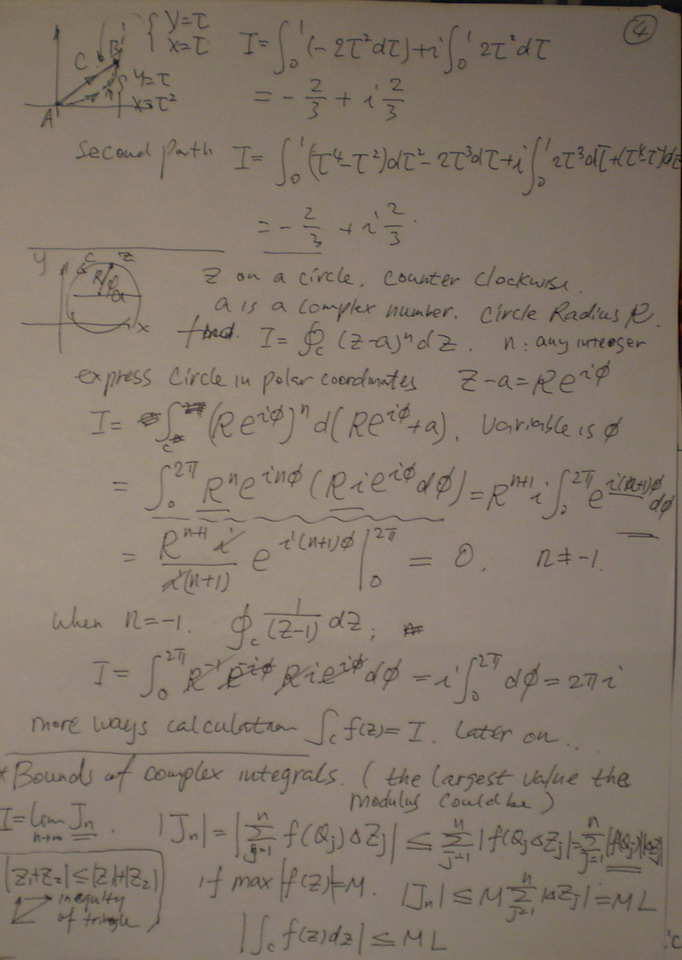 ④
y=τ
x=τ
C B
y=τ
x=τ²
A
I=∫₀¹(-2τ²dτ)+i∫₀¹2τ²dτ
= -2/3 + i 2/3
Second path I=∫₀¹(τ⁴-τ²)dτ²-2τ³dτ+i∫₀¹2τ³dτ+(τ⁴-τ²)dτ
= -2/3 + i 2/3.
y C z
R φ
a
x
z on a circle. counter clockwise.
a is a complex number. circle Radius R.
find. I=∮c (z-a)ⁿdz. n: any integer
express circle in polar coordinates z-a=Re^{iφ}
I= ∫c (Re^{iφ})ⁿ d(Re^{iφ}+a). variable is φ
= ∫₀^{2π} Rⁿe^{inφ}(Rie^{iφ}dφ)=R^{n+1}i∫₀^{2π}e^{i(n+1)φ}dφ
= R^{n+1}i/i(n+1) e^{i(n+1)φ}|₀^{2π} = 0. n≠-1.
when n=-1. ∮c 1/(z-1) dz;
I=∫₀^{2π}R⁻¹e^{-iφ}Rie^{iφ}dφ=i∫₀^{2π}dφ=2πi
more ways calculation ∫c f(z)=I. Later on...
*Bounds of complex integrals. (the largest value the
modulus could be)
I=lim n→∞ Jn. |Jn|=|∑_{j=1}^n f(Qj)ΔZj|≤∑_{j=1}^n|f(QjΔZj|=∑_{j=1}^n|f(Qj)||ΔZj|
|z₁+z₂|≤|z₁|+|z₂|
inequity
of triangle
if max|f(z)|=M. |Jn|≤M∑_{j=1}^n|ΔZj|=ML
|∫c f(z)dz|≤ML